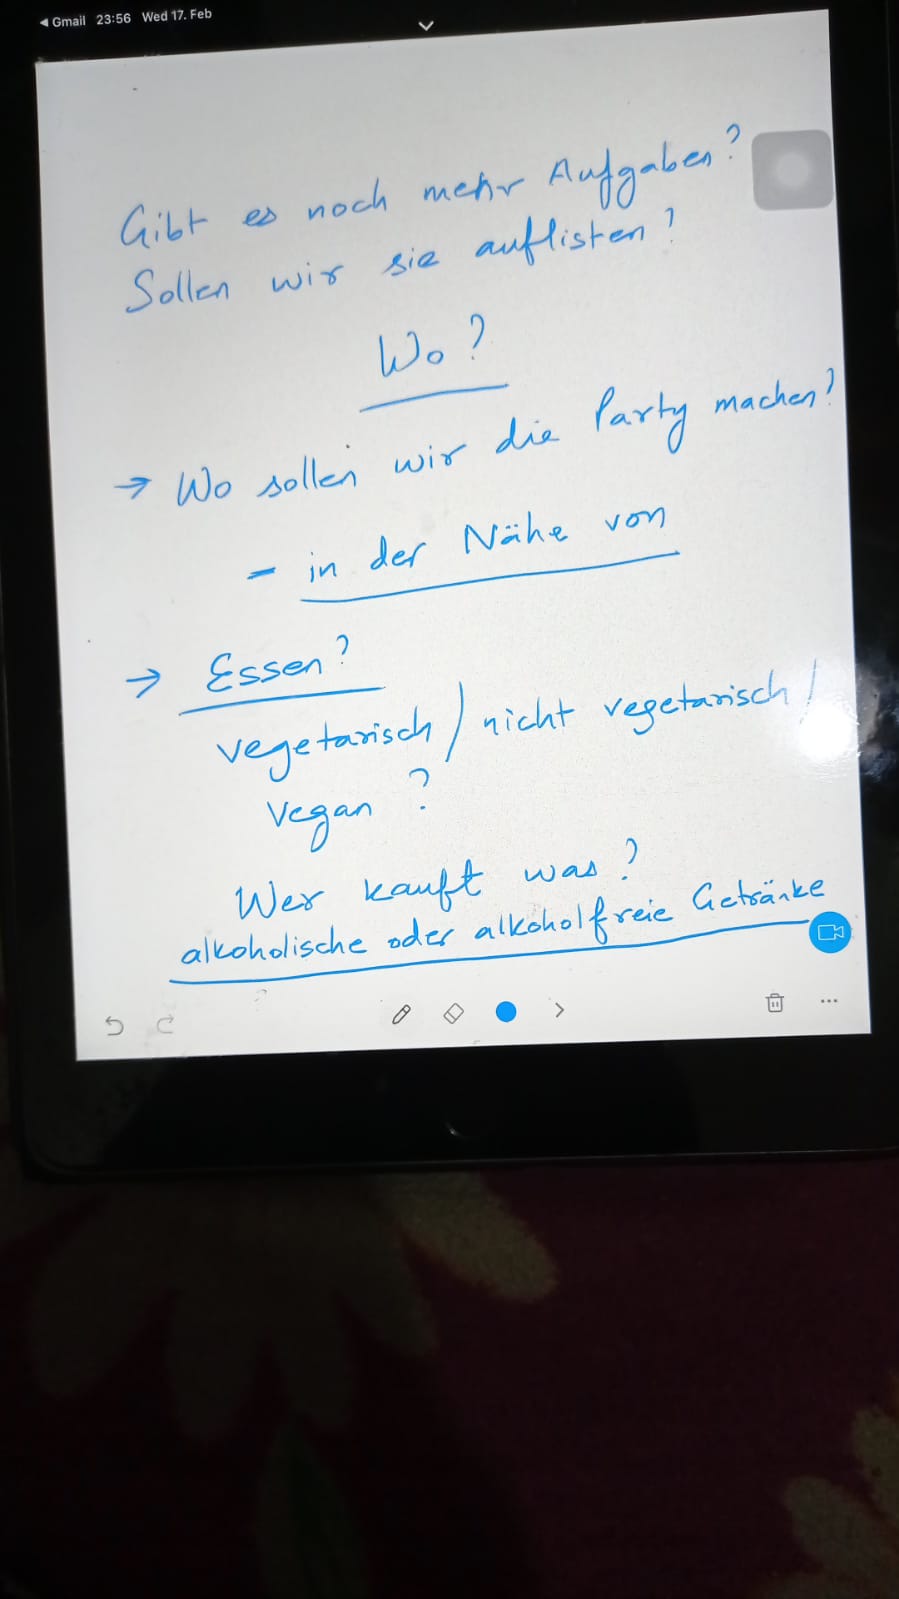 ◀ Gmail 23:56 Wed 17. Feb
Gibt es noch mehr Aufgaben?
Sollen wir sie auflisten?
Wo?
→ Wo sollen wir die Party machen?
- in der Nähe von
→ Essen?
vegetarisch / nicht vegetarisch /
vegan ?
Wer kauft was?
alkoholische oder alkoholfreie Getränke